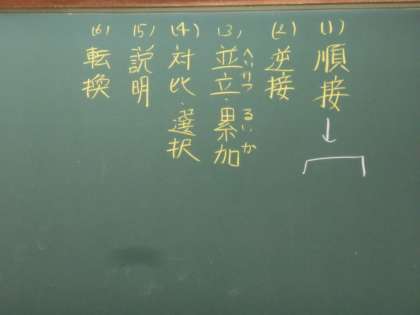 (1) 順接
(2) 逆接
(3) 並立・累加
へいりつ るいか
(4) 対比・選択
(5) 説明
(6) 転換